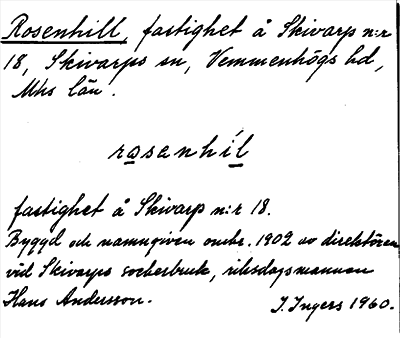 Rosenhill, fastighet å Skivarp n:r
18, Skivarps sn, Vemmenhögs hd,
Mhs län.
rosenhíl
fastighet å Skivarp n:r 18.
Byggd och namngiven omkr. 1902 av direktören
vid Skivarps sockerbruk, riksdagsmannen
Hans Andersson.
I. Ingers 1960.